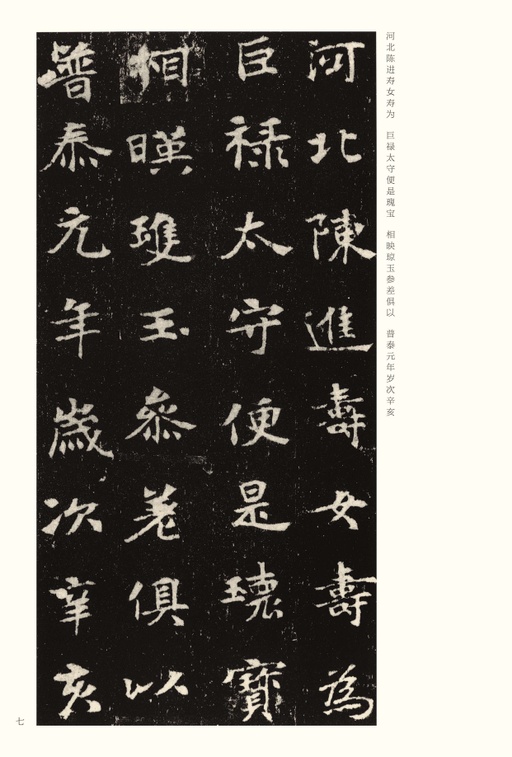 河北陈进寿女寿为　巨禄太守便是瑰宝　相映琼玉参差俱以　普泰元年岁次辛亥
河北陳進壽女壽為
巨禄太守便是瓌寶
相暎瓊玉叅差俱以
普泰元年歲次辛亥
七